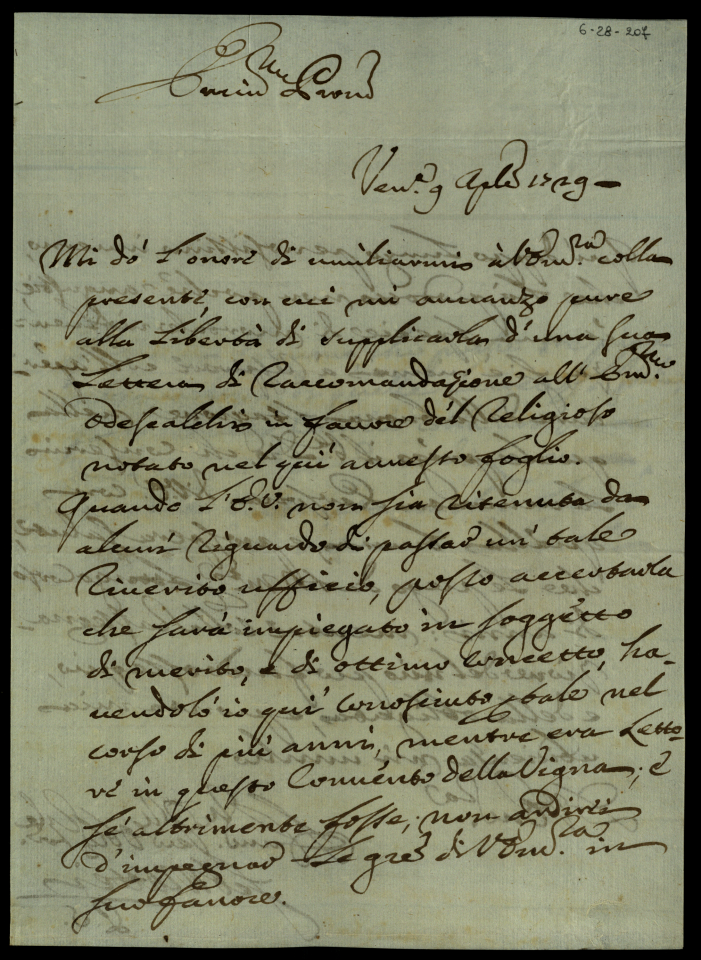 6-28-207
Em.mo Prone
Ven.a 9 Aple 1729
Mi dó l'onore di umiliarmi à V Em.za colla
presente, con cui mi avvanzo pure
alla libertà di supplicarla d'una sua
Lettera di Raccomandazione all' Em.mo
Odescalchi in favore dél Religioso
notato nel quì annesso foglio.
Quando l'E.V. non sia ritenuta da
alcun riguardo di passar un tale
riverito ufficio, posso accertarla
che sarà impiegato in soggetto
di merito, e di ottimo concetto, ha-
vendolo io quì conosciuto p tale nel
corso di più anni, mentre era Letto-
re in questo Convento della Vigna; e
sé altrimente fosse, non ardirei
d'impegnar le gre di V Em.za in
suo favore.